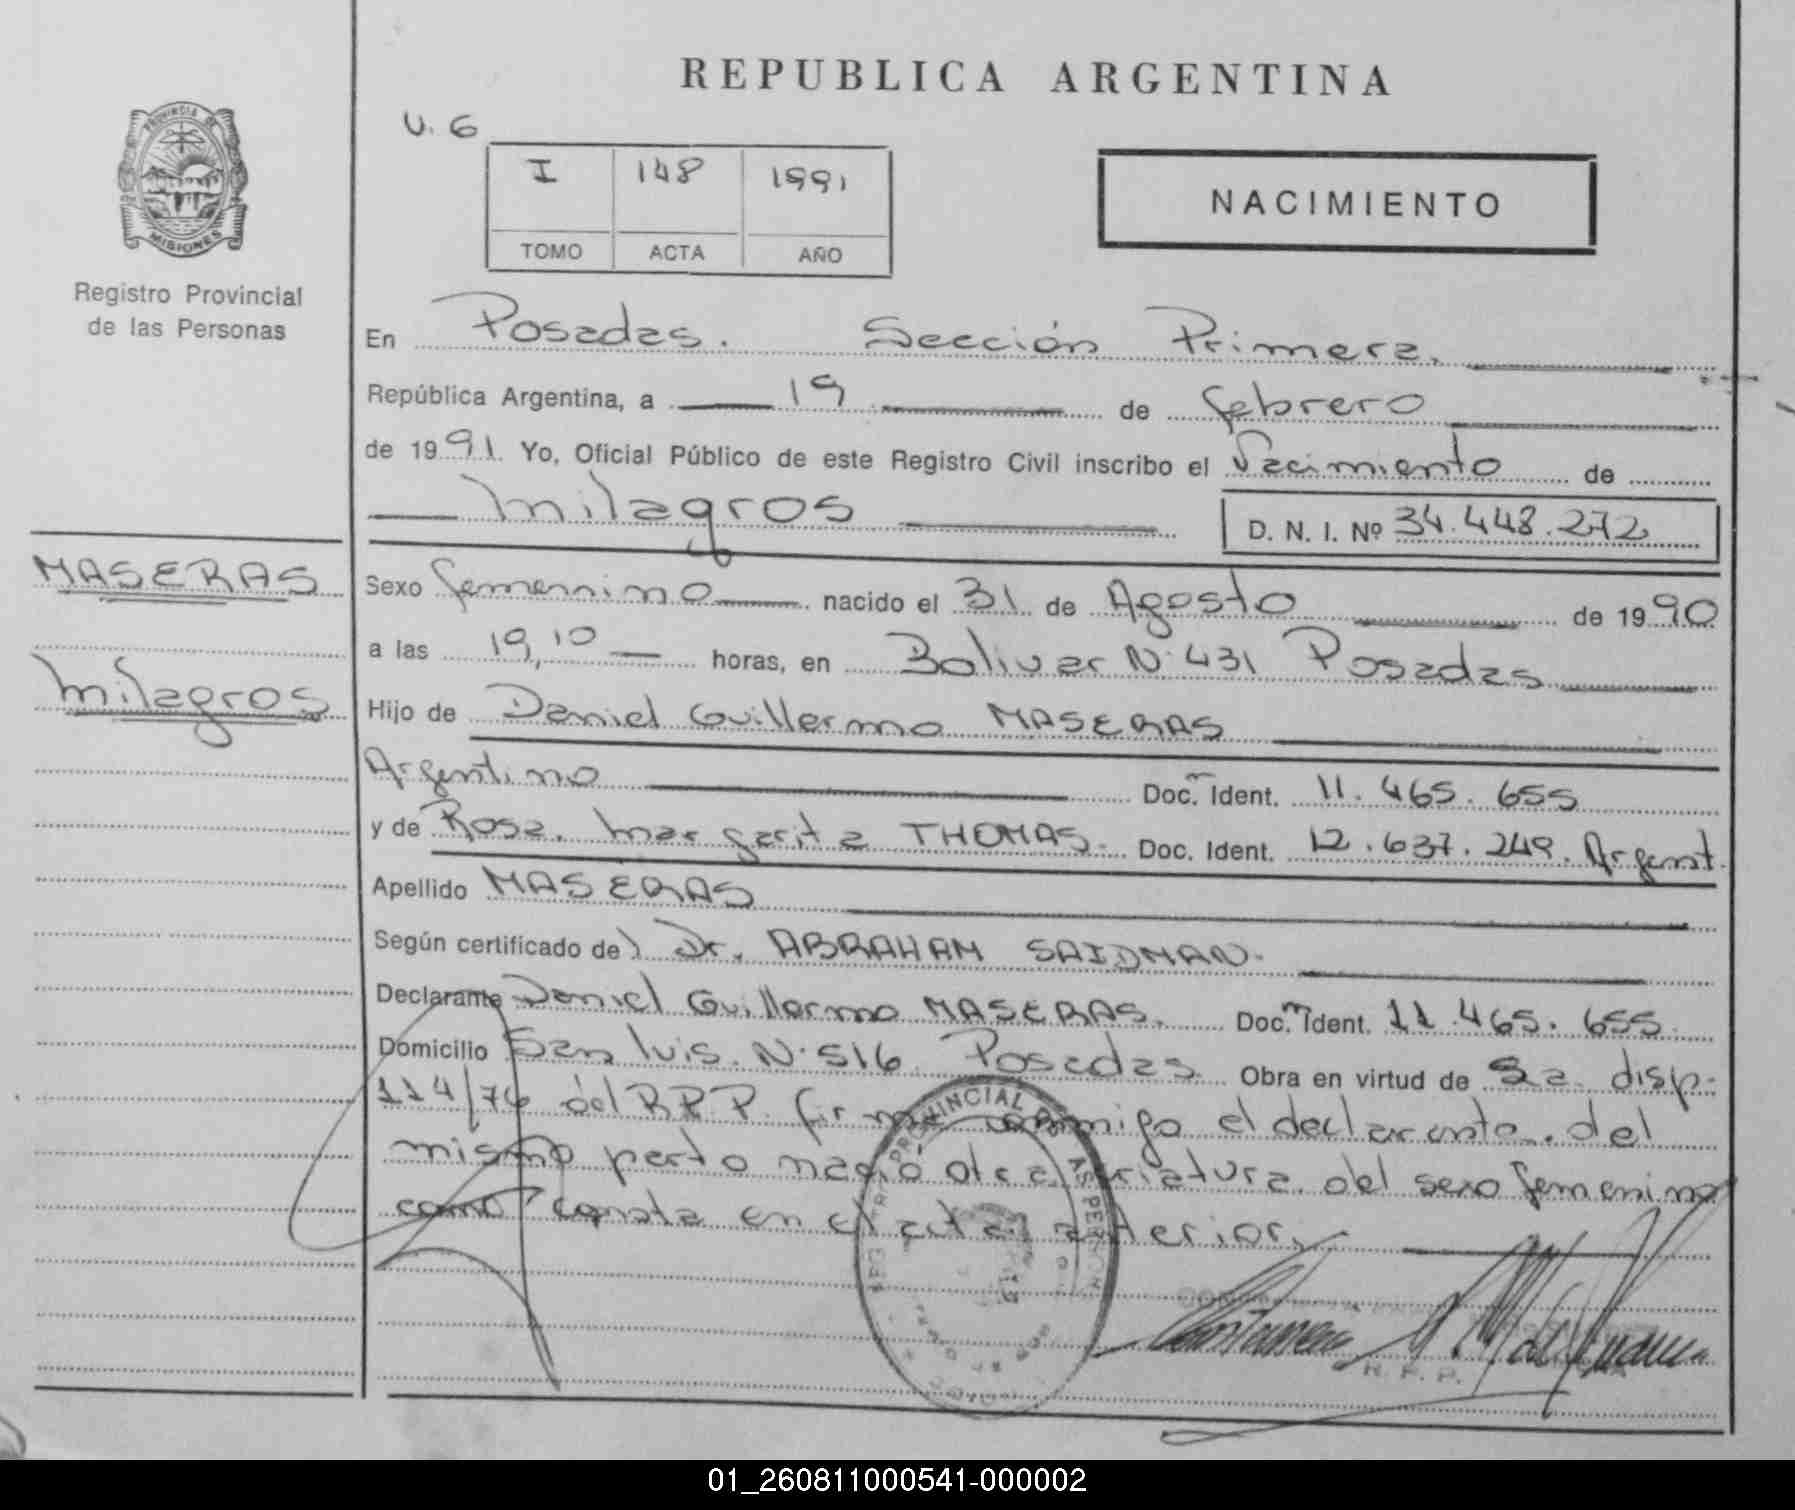 REPUBLICA ARGENTINA
U. 6
PROVINCIA DE
MISIONES
Registro Provincial
de las Personas
I 148 1991
TOMO ACTA AÑO
NACIMIENTO
En Posadas. Sección Primera.
República Argentina, a 19 de febrero
de 1991. Yo, Oficial Público de este Registro Civil inscribo el Nacimiento de
Milagros D. N. I. Nº 34.448.272
MASERAS
Milagros
Sexo femenino nacido el 31 de Agosto de 1990
a las 19,10 horas, en Bolivar N. 431 Posadas
Hijo de Daniel Guillermo MASERAS
Argentino Doc. Ident. 11.465.655
y de Rosa Margarita THOMAS. Doc. Ident. 12.637.249. Argent.
Apellido MASERAS
Según certificado de Dr. ABRAHAM SAIDMAN.
Declarante Daniel Guillermo MASERAS. Doc. Ident. 11.465.655.
Domicilio San Luis N. 516 Posadas Obra en virtud de disp.
114/76 del R.P.P. firma conmigo el declarante. del
mismo parto nació otra criatura del sexo femenino
como consta en el acta anterior.
PROVINCIAL
R. P. P.
01_260811000541-000002